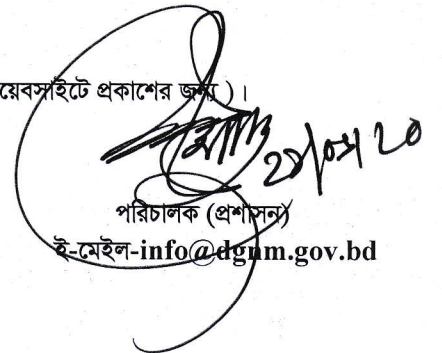 য়েবসাইটে প্রকাশের জন্য )।
পরিচালক (প্রশাসন)
ই-মেইল-info@dgnm.gov.bd